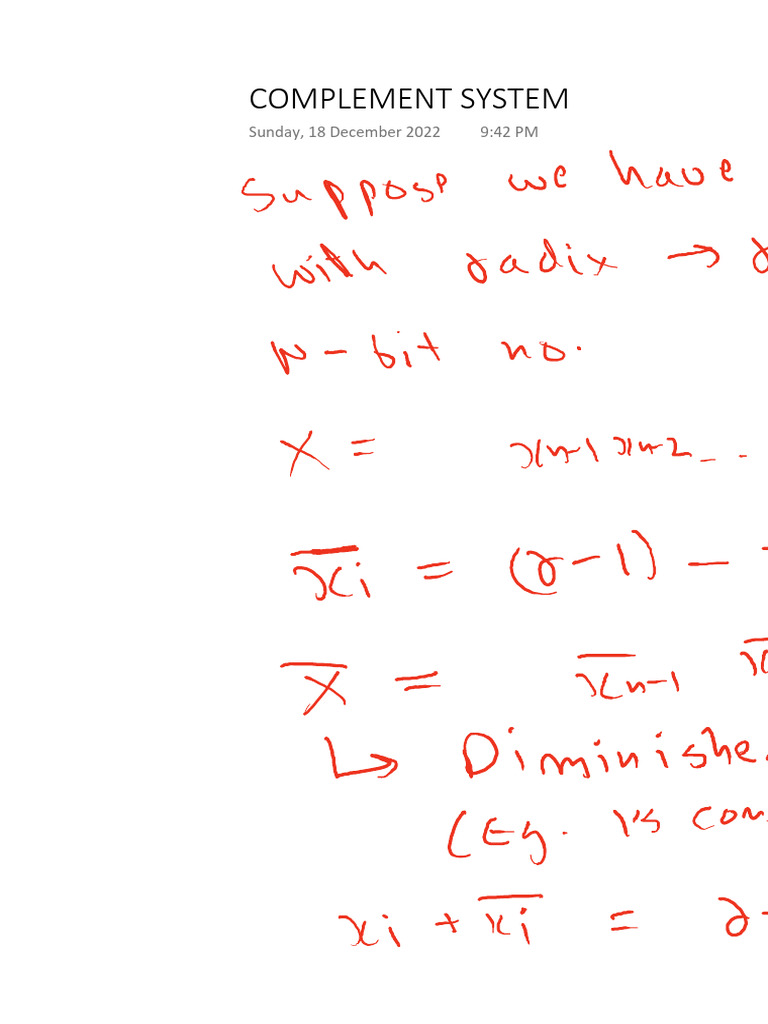 COMPLEMENT SYSTEM
Sunday, 18 December 2022 9:42 PM
Suppose we have
with radix → r
n - bit no.
X = xn-1 xn-2 - -
x̅i̅ = (r-1) -
X̅ = x̅n-1 x̅
↳ Diminishe
(Eg. 1's com
xi + x̅i̅ = r-